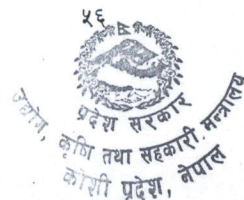 ५६
प्रदेश सरकार
उद्योग, कृषि तथा सहकारी मन्त्रालय
कोशी प्रदेश, नेपाल